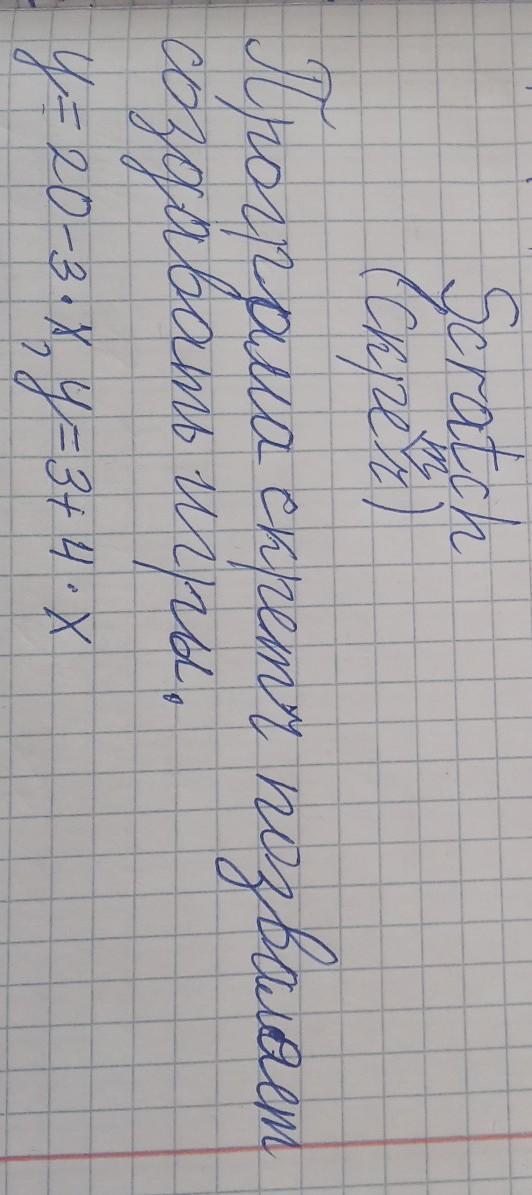 Scratch
(Скретч)
Програма скретч позвалает
создавать игры.
y = 20 - 3 · x, y = 3 + 4 · x